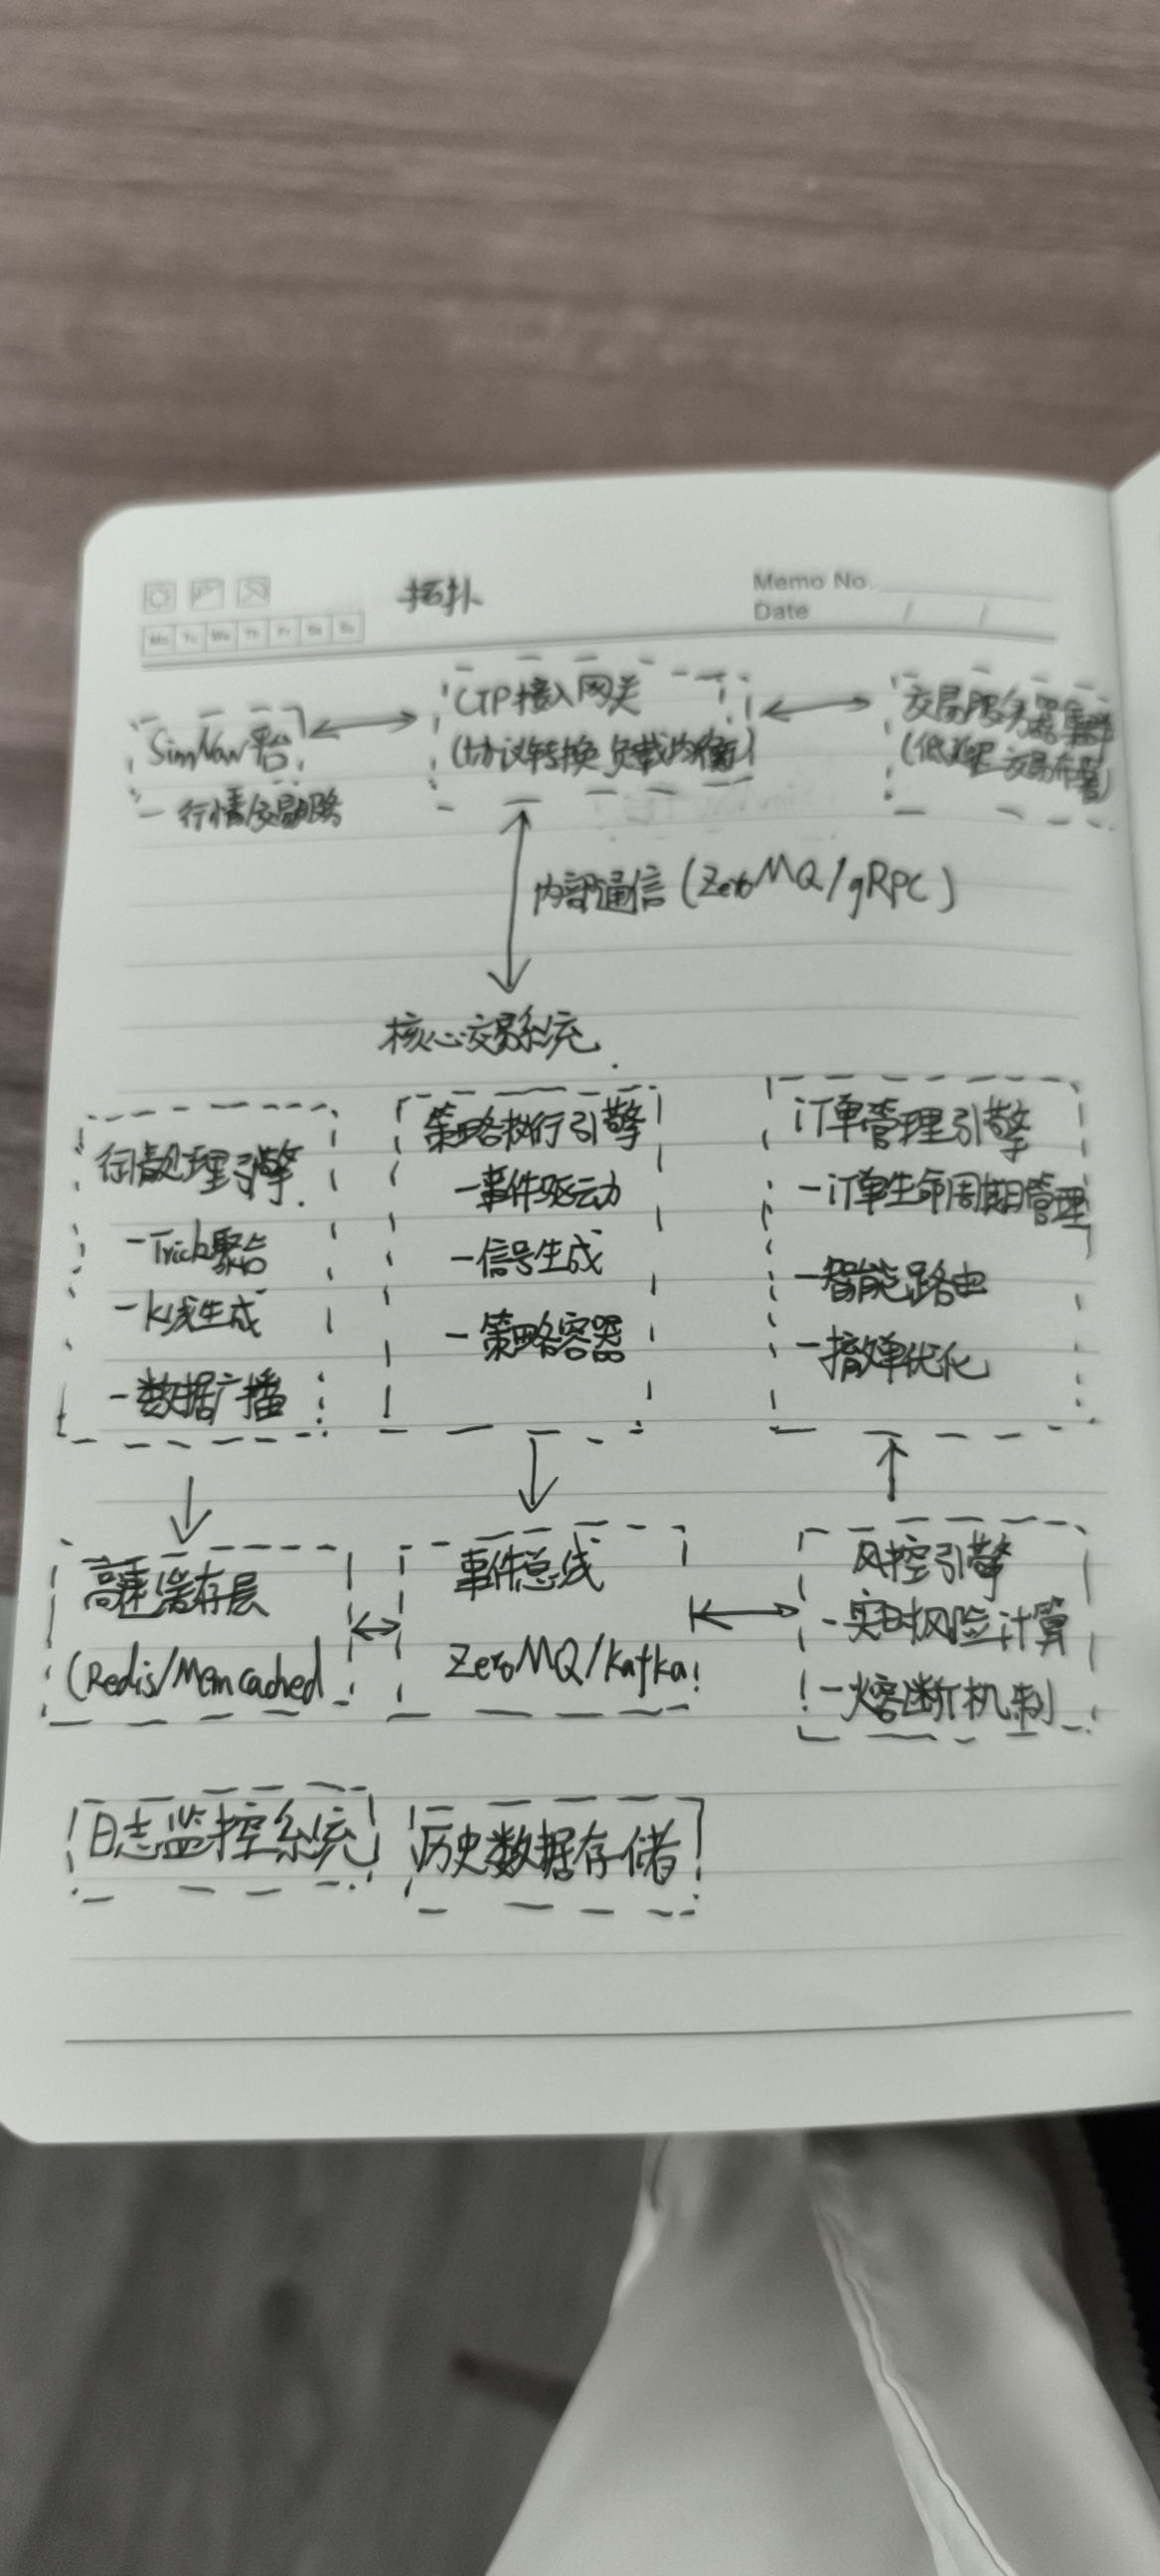 拓扑
Memo No.
Date / /
Mo Tu We Th Fr Sa Su
SimNow平台
- 行情/交易服务
CTP接入网关
(协议转换 负载均衡)
交易服务器集群
(低延迟交易布署)
内部通信 (ZeroMQ/gRPC)
核心交易系统
行情处理引擎
-Trick聚合
-K线生成
-数据广播
策略执行引擎
-事件驱动
-信号生成
-策略容器
订单管理引擎
-订单生命周期管理
-智能路由
-撤单优化
高速缓存层
(Redis/Memcached
事件总线
ZeroMQ/Kafka
风控引擎
-实时风险计算
-熔断机制
日志监控系统
历史数据存储